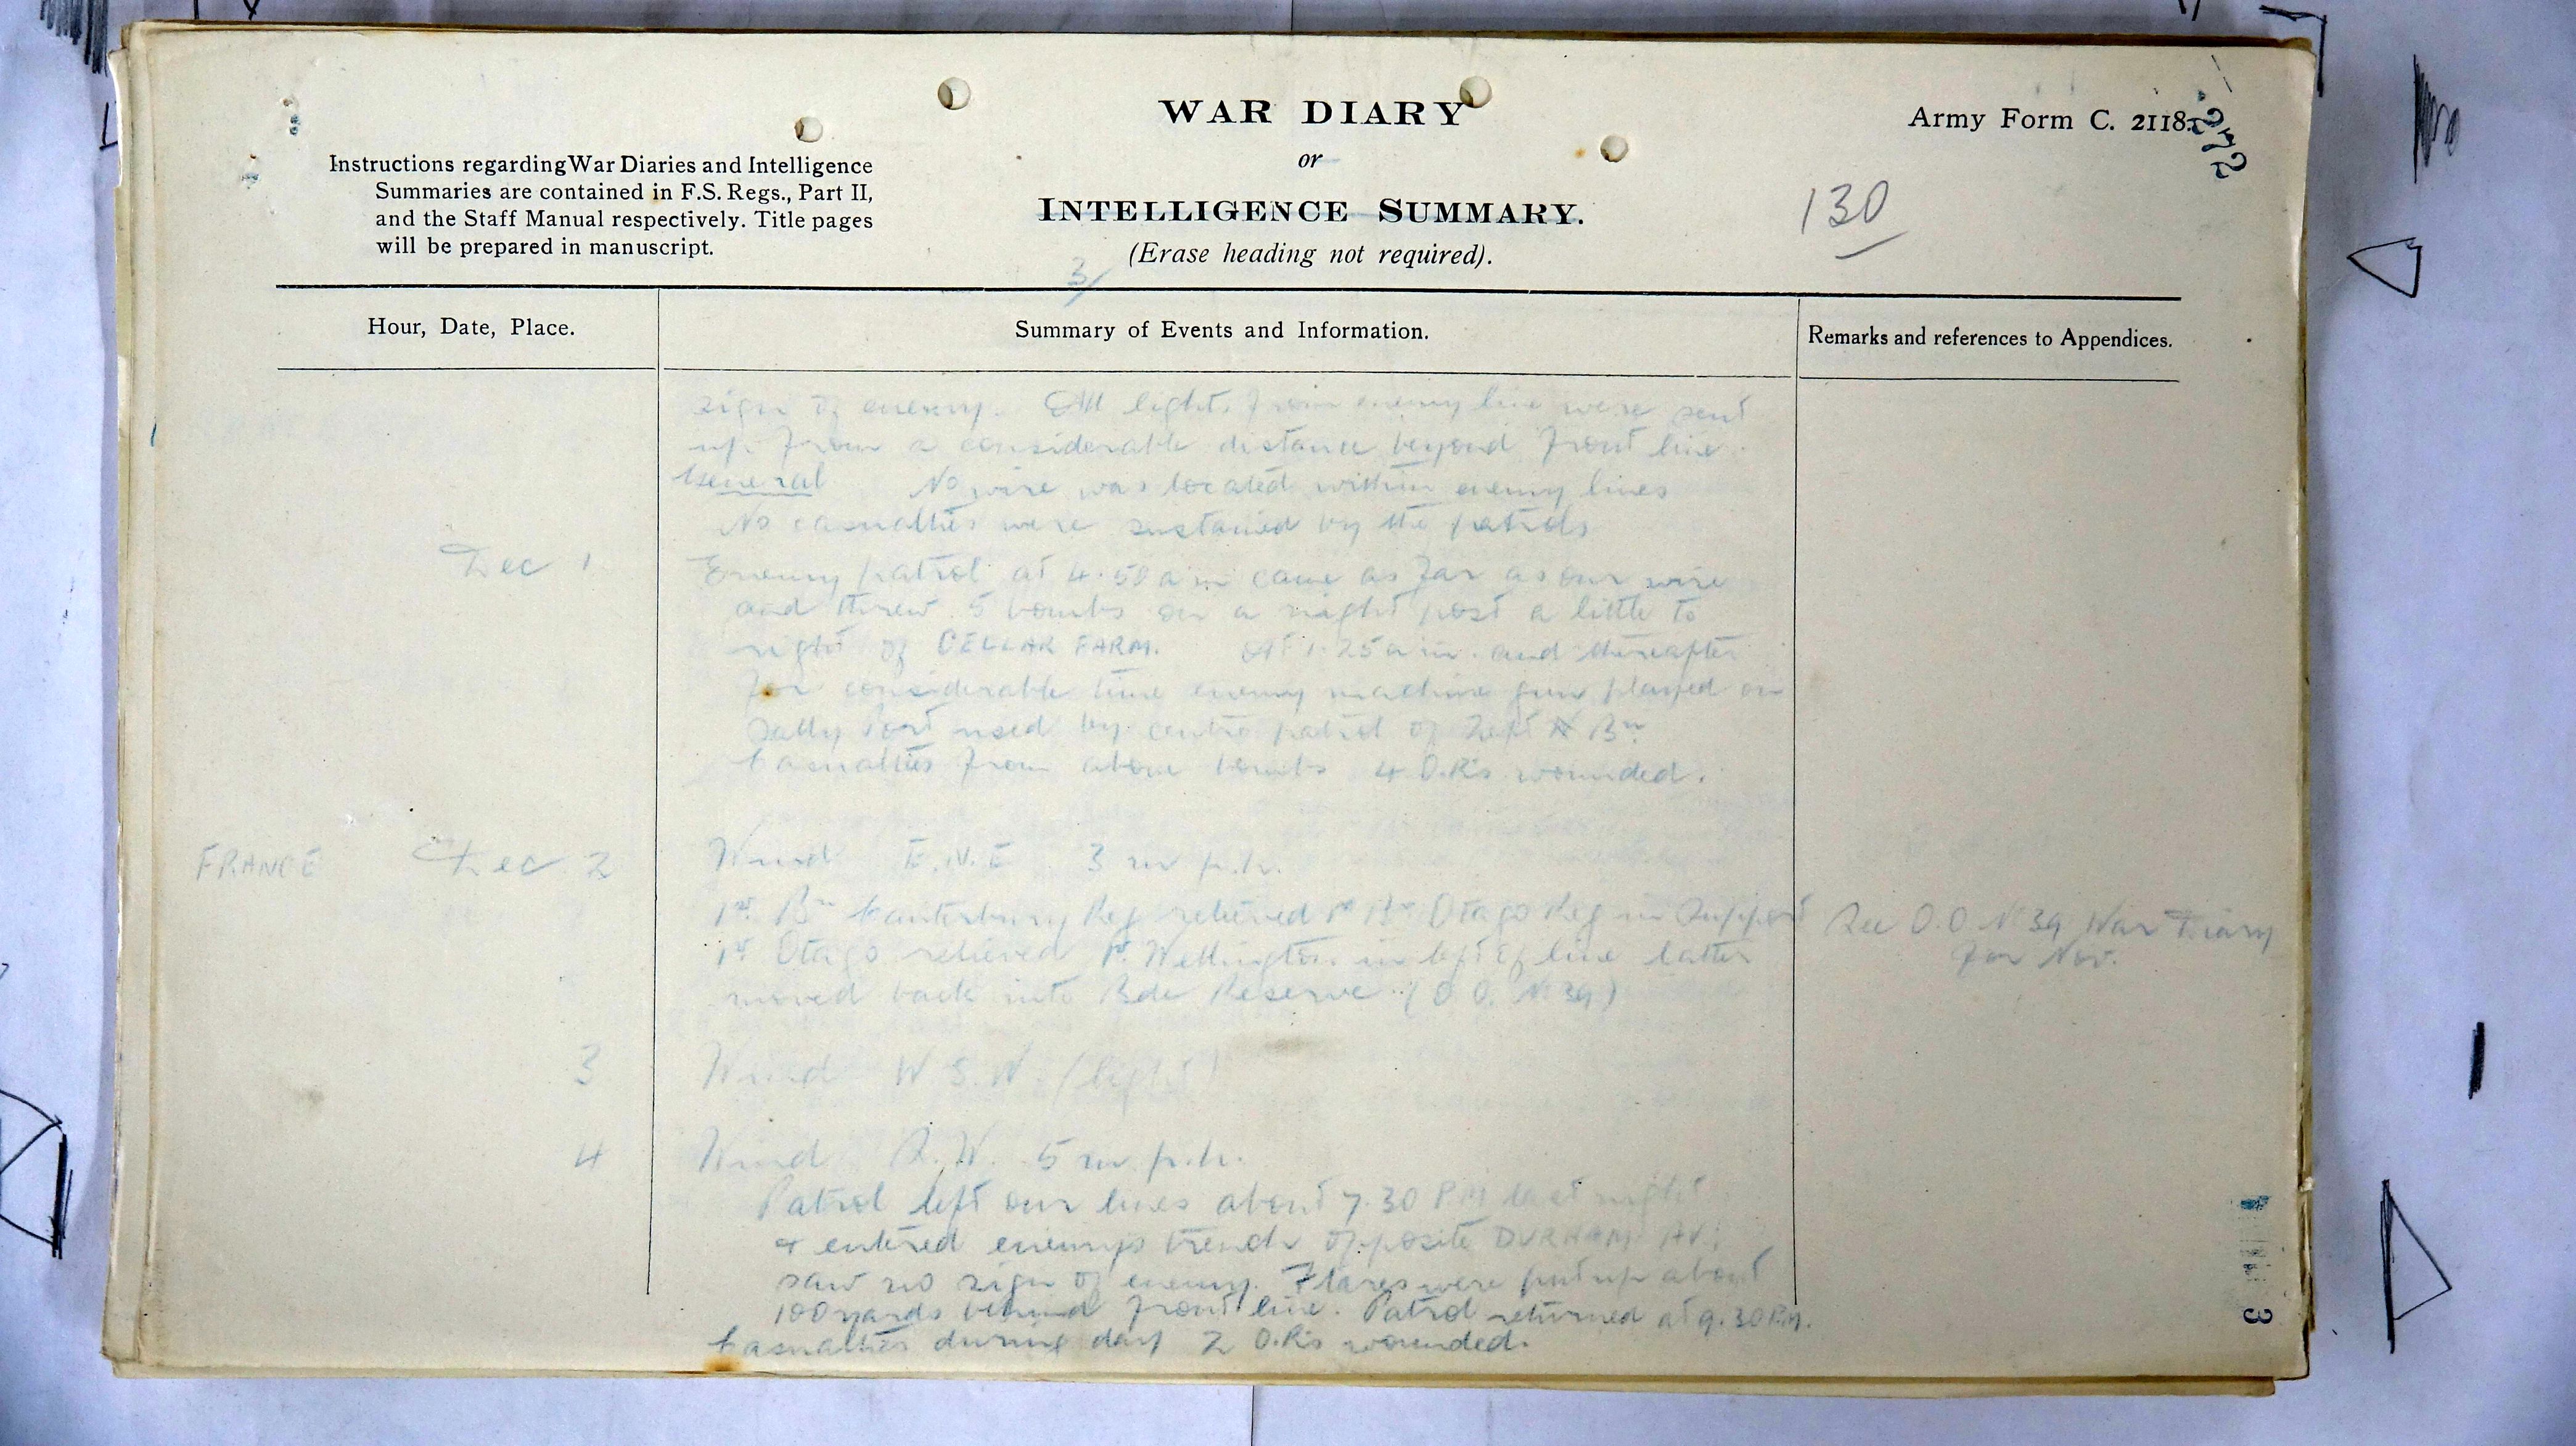 WAR DIARY
or
INTELLIGENCE SUMMARY.
(Erase heading not required).
Army Form C. 2118.
Instructions regarding War Diaries and Intelligence
Summaries are contained in F.S. Regs., Part II,
and the Staff Manual respectively. Title pages
will be prepared in manuscript.
130
3/
Hour, Date, Place.
Summary of Events and Information.
Remarks and references to Appendices.
sign of enemy. All lights from enemy line were sent
up from a considerable distance beyond front line.
General No wire was located within enemy lines
No casualties were sustained by the patrols
Dec 1
Enemy patrol at 4.50 a m came as far as our wire
and threw 5 bombs on a night post a little to
right of CELLAR FARM. At 1.25 a.m. and thereafter
for considerable time enemy machine gun played on
Sally Port used by centre patrol of Left Bn
Casualties from above bombs 4 O.R's wounded.
FRANCE Dec 2
Wind E.N.E 3 m p.h.
1st Bn Canterbury Reg relieved 1st Bn Otago Reg in Support
1st Otago relieved 1st Wellington in left of line latter
moved back into Bde Reserve (O.O. No 39)
See O.O No 39 War Diary
for Nov.
3
Wind W.S.W. (light)
4
Wind S.W. 5 m p.h.
Patrol left our lines about 7.30 PM last night
& entered enemys trench opposite DURHAM AV.;
saw no sign of enemy. Flares were put up about
100 yards behind front line. Patrol returned at 9.30 P.M.
Casualties during day 2 O.R's wounded.
3